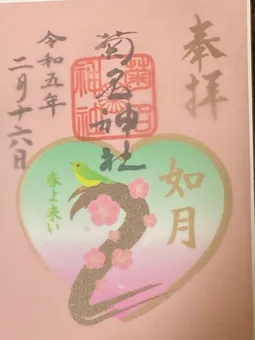 奉拝
如月
菊名神社
春よ来い
令和五年
二月十六日